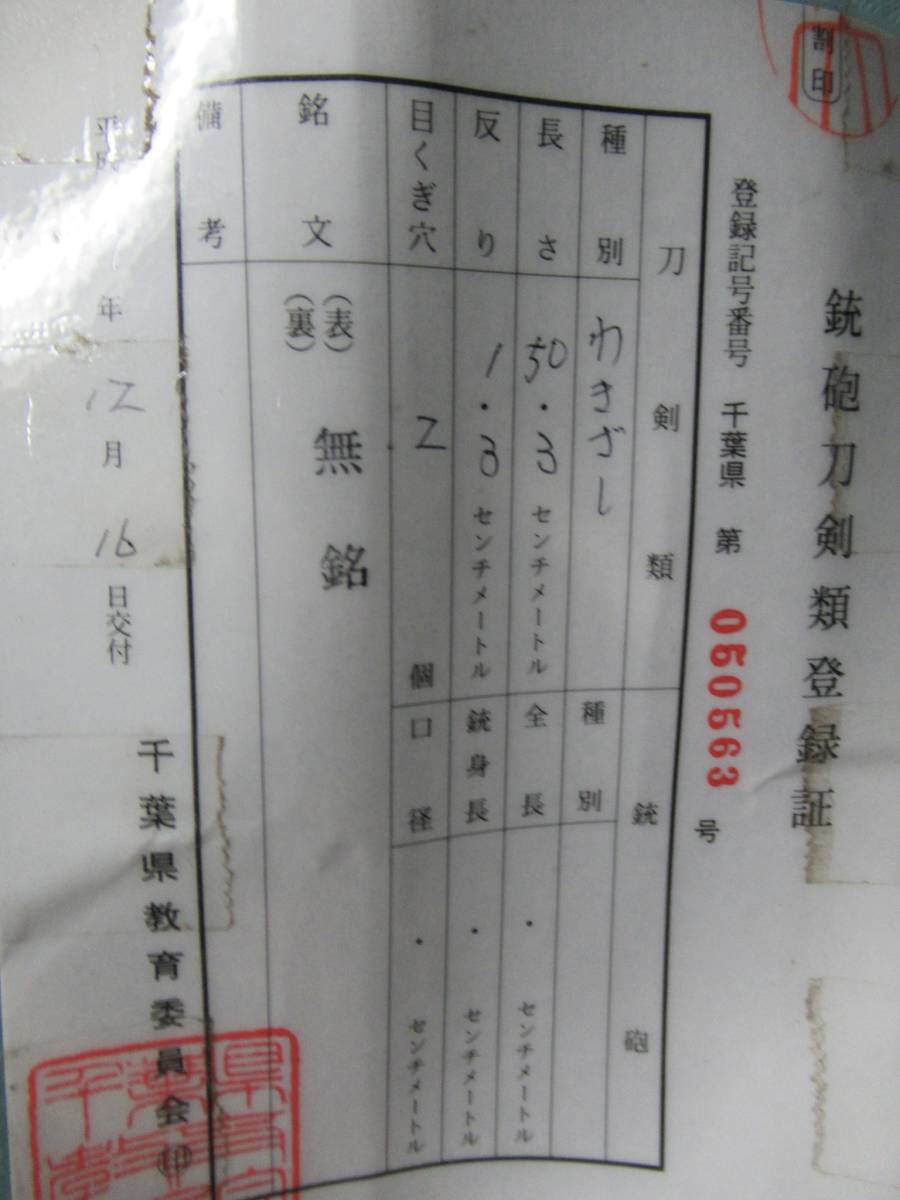 割印
銃砲刀剣類登録証
登録記号番号 千葉県 第 050563 号
刀剣類
銃砲
種別 わきざし
種別
長さ 50.3 センチメートル
全長 ・ センチメートル
反り 1.3 センチメートル
銃身長 ・ センチメートル
目くぎ穴 2 個
口径 ・ センチメートル
銘文 (表) 無銘
(裏)
備考
平成 年 12 月 16 日交付
千葉県教育委員会 印